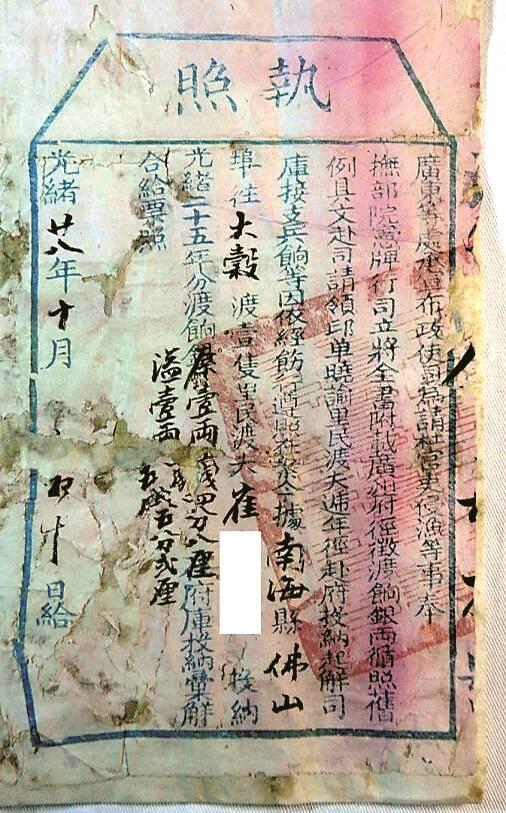 執照
廣東等處承宣布政使司為請杜官吏侵漁等事奉
撫部院憲牌行司立將全書附載廣州府徑徵渡餉銀兩循照舊
例具文赴司請領印单曉諭里民渡夫遞年徑赴府投納起解司
庫接支兵餉等因依經飭行遵照在案今據南海縣佛山
埠往大穀渡壹隻里民渡夫崔 投納
光緒二十五年分渡餉銀原壹兩 府庫投納彙解
溢壹兩 五錢五分弍厘
合給票照
光緒廿八年十月 日給